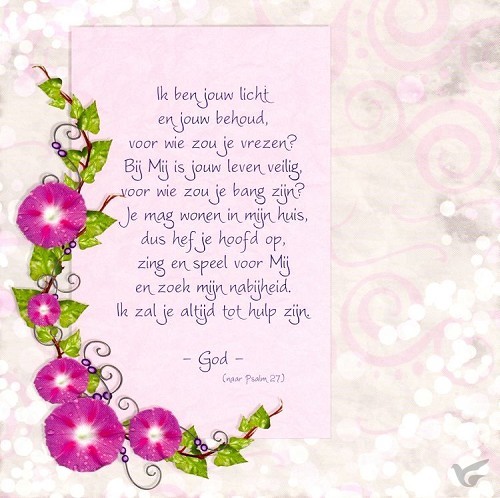 Ik ben jouw licht
en jouw behoud,
voor wie zou je vrezen?
Bij Mij is jouw leven veilig,
voor wie zou je bang zijn?
Je mag wonen in mijn huis,
dus hef je hoofd op,
zing en speel voor Mij
en zoek mijn nabijheid.
Ik zal je altijd tot hulp zijn.
- God -
(naar Psalm 27)